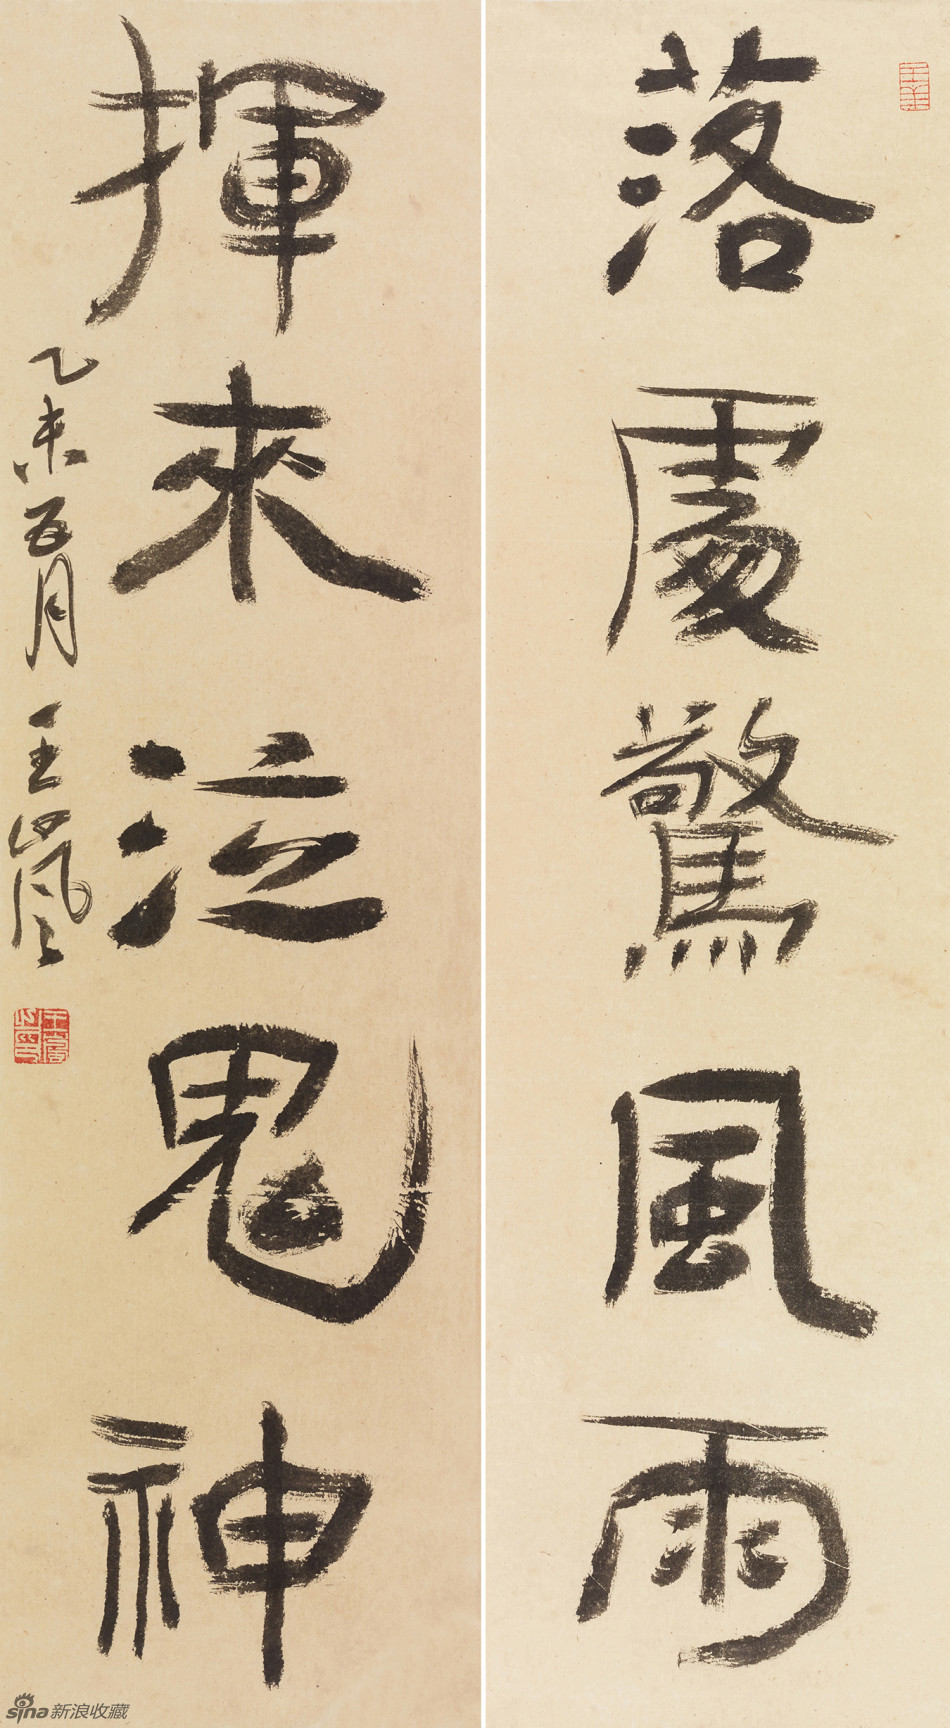 落處驚風雨
揮來泣鬼神
乙未五月 王嵐
sina新浪收藏